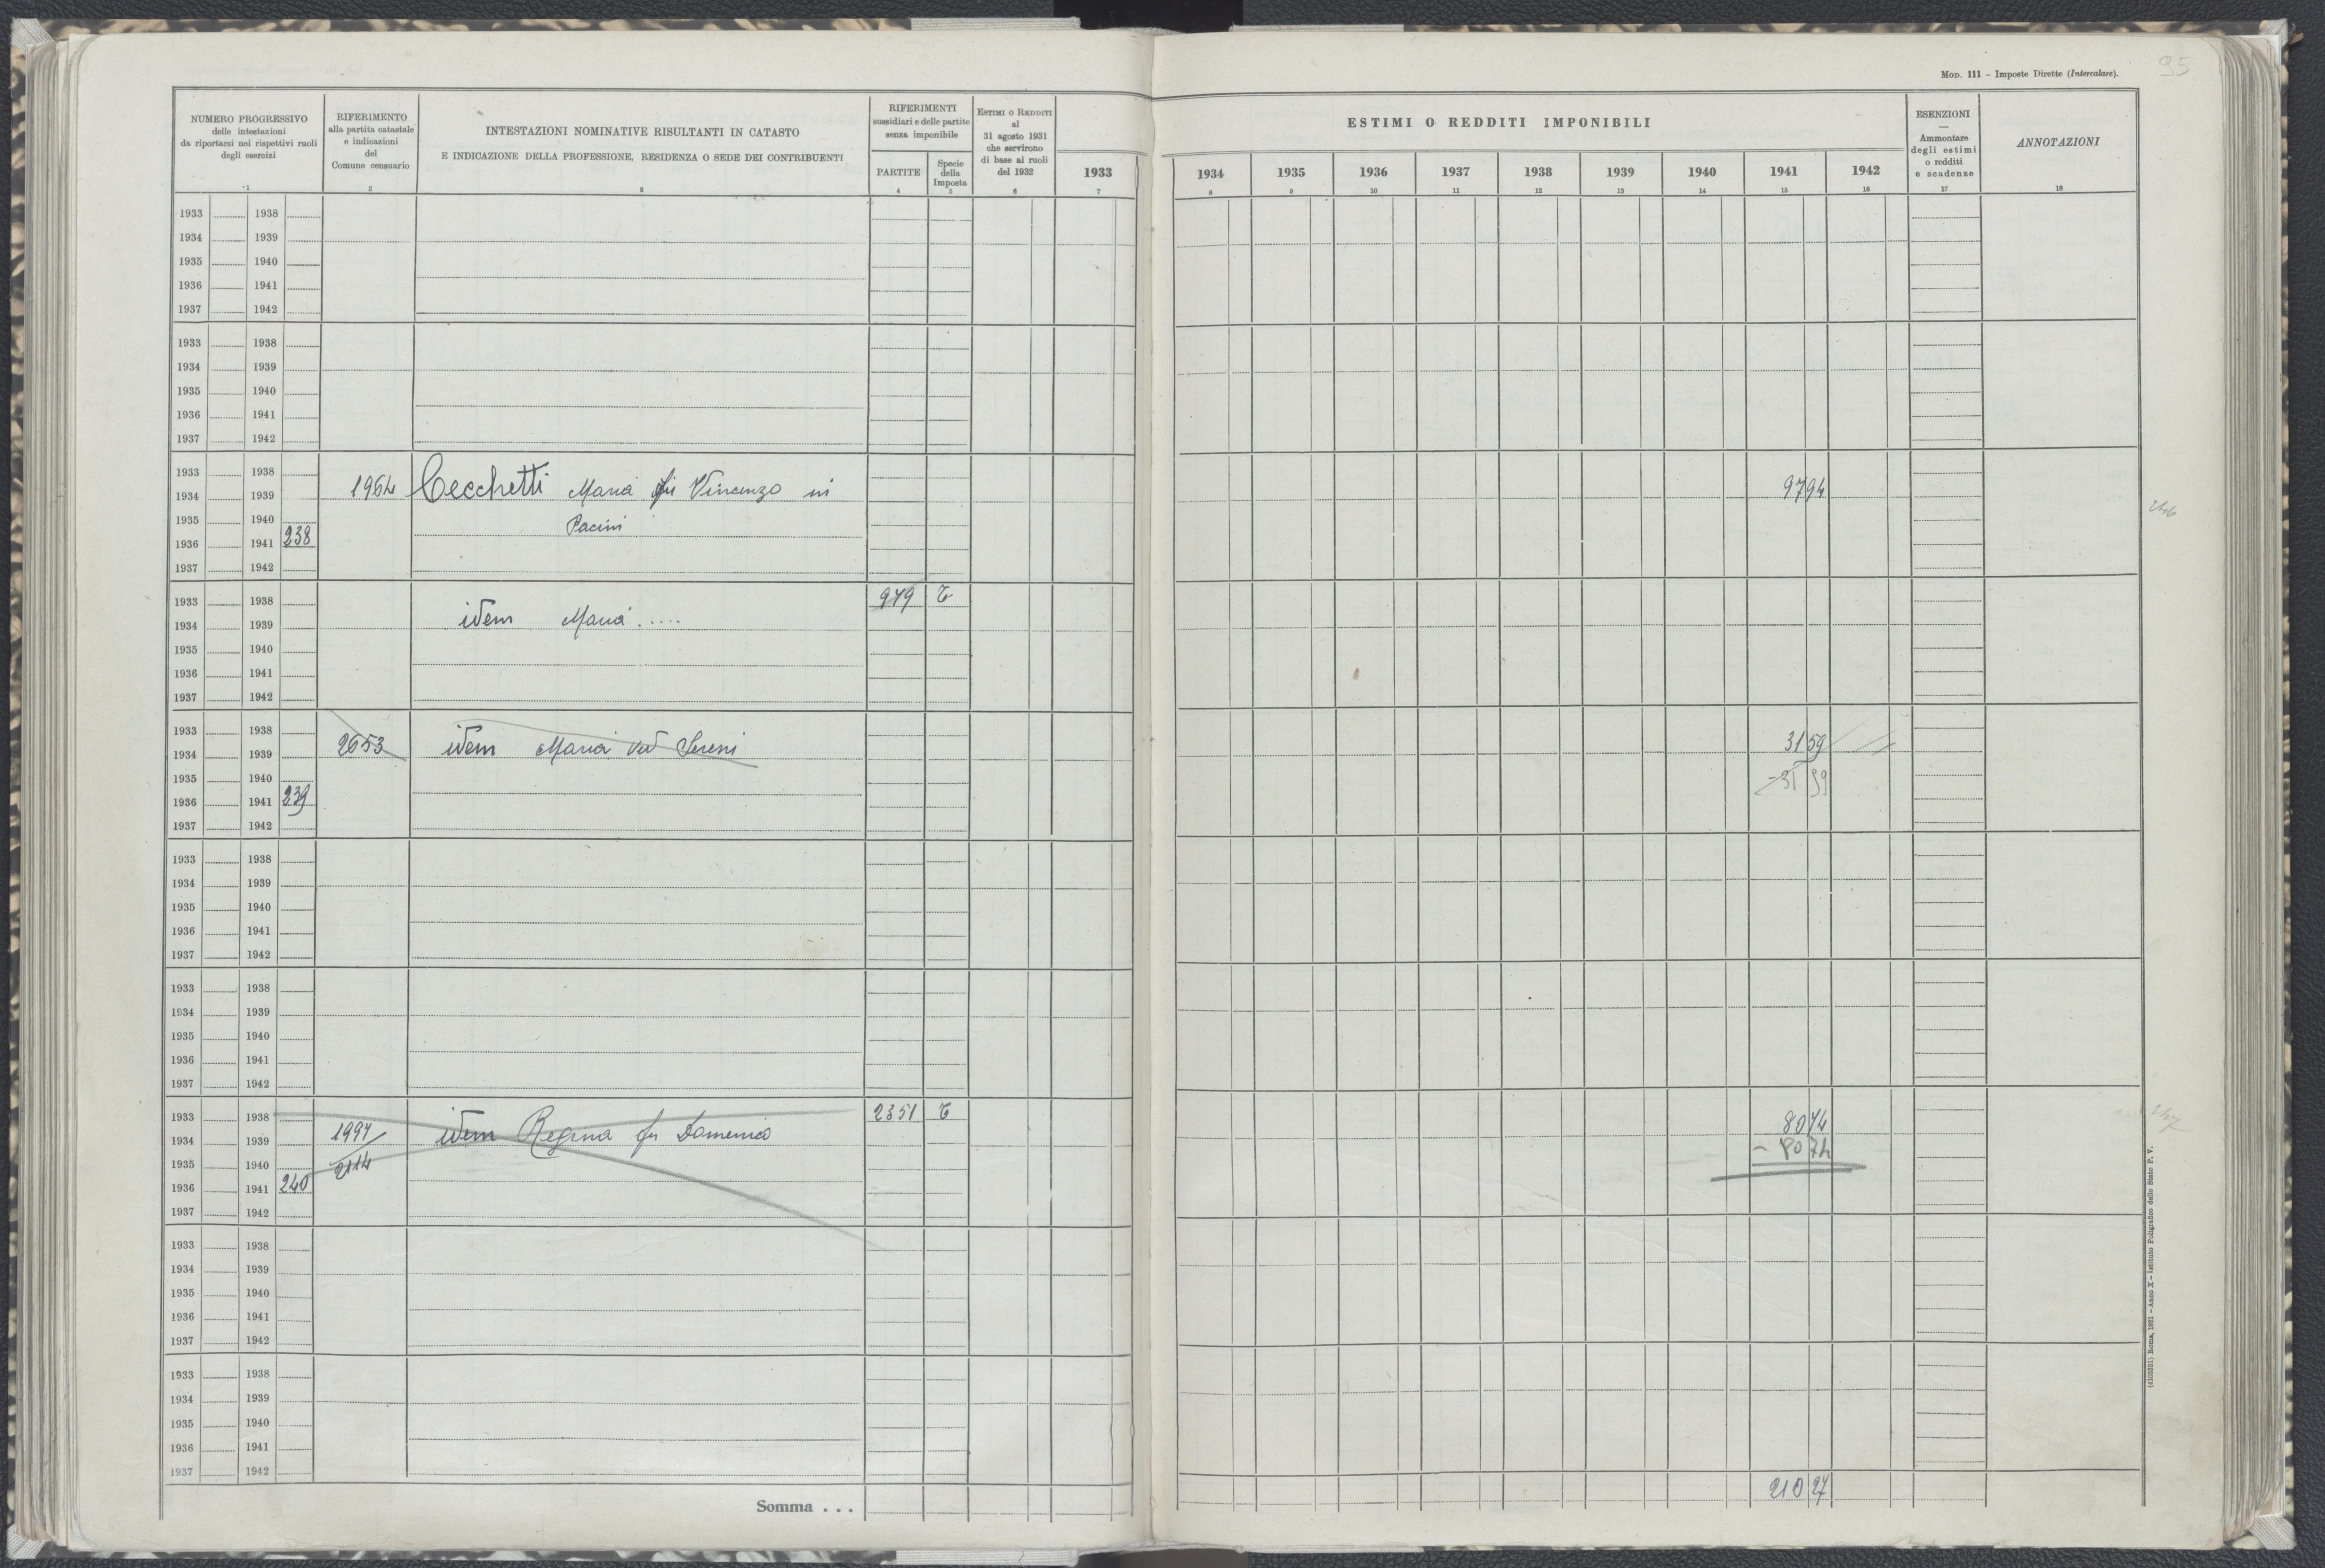 MOD. 111 – Imposte Dirette (Intercalare).
95
NUMERO PROGRESSIVO
delle intestazioni
da riportarsi nei rispettivi ruoli
degli esercizi
1
RIFERIMENTO
alla partita catastale
e indicazioni
del
Comune censuario
2
INTESTAZIONI NOMINATIVE RISULTANTI IN CATASTO
E INDICAZIONE DELLA PROFESSIONE, RESIDENZA O SEDE DEI CONTRIBUENTI
3
RIFERIMENTI
sussidiari e delle partite
senza imponibile
PARTITE
4
Specie
della
Imposta
5
ESTIMI O REDDITI
al
31 agosto 1931
che servirono
di base ai ruoli
del 1932
6
1933
7
ESTIMI O REDDITI IMPONIBILI
1934 1935 1936 1937 1938 1939 1940 1941 1942
8 9 10 11 12 13 14 15 16
ESENZIONI
—
Ammontare
degli estimi
o redditi
e scadenze
17
ANNOTAZIONI
18
1933 1938
1934 1939
1935 1940
1936 1941
1937 1942
1933 1938
1934 1939
1935 1940
1936 1941
1937 1942
1933 1938
1934 1939 1964 Cecchetti Maria fu Vincenzo in 9794
1935 1940 Pacini
1936 1941 238
1937 1942
1933 1938 979 T
1934 1939 idem Maria .....
1935 1940
1936 1941
1937 1942
1933 1938
1934 1939 2653 idem Maria ved Sereni 3159
1935 1940 -31 59
1936 1941 239
1937 1942
1933 1938
1934 1939
1935 1940
1936 1941
1937 1942
1933 1938
1934 1939
1935 1940
1936 1941
1937 1942
1933 1938 2351 T 8074
1934 1939 1997 idem Regina fu Domenico
1935 1940 2114 - 8074
1936 1941 240
1937 1942
1933 1938
1934 1939
1935 1940
1936 1941
1937 1942
1933 1938
1934 1939
1935 1940
1936 1941
1937 1942
Somma . . . 210 27
(410351) Roma, 1931 – Anno X – Istituto Poligrafico dello Stato P. V.